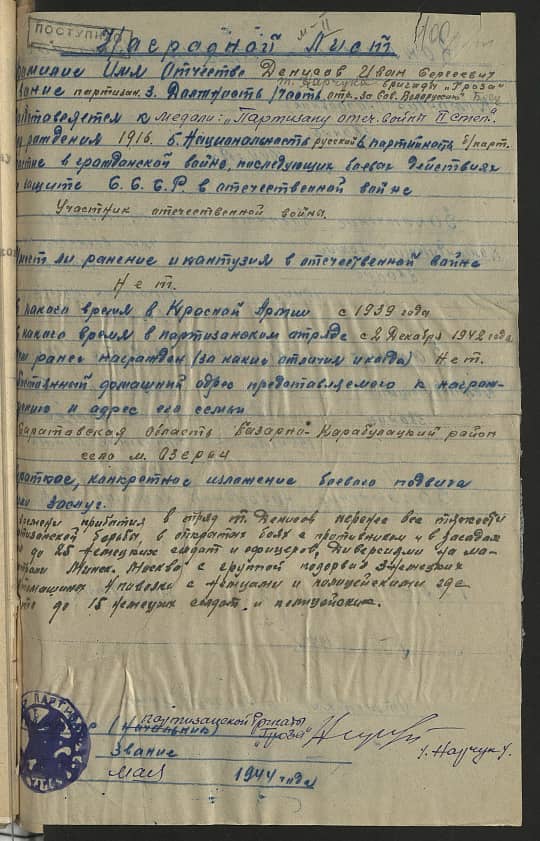 ПОСТУПИЛ
Наградной Лист
амилие Имя Отчество Денисов Иван Сергеевич
вание партизан. 3. Должность, часть отр. За Сов. Белоруссию бригады "Гроза"
едставляется к медали: "Партизану отеч. войны II степ."
рождения 1916. 5. Национальность русский 6 партийность б/парт.
стие в гражданской войне, последующих боевых действиях
защите С.С.С.Р. в отечественной войне
Участник отечественной войны.
меет ли ранение и контузия в отечественной войне
Нет.
какого время в Красной Армии с 1939 года
какого время в партизанском отряде с 2 Декабря 1942 года.
ем ранее награжден (за какие отличия и когда) Нет.
стоянный домашний адрес представляемого к награж-
дению и адрес его семьи
Саратовская область Базарно-Карабулацкий район
село м. Озерки
раткое, конкретное изложение боевого подвига
или заслуг.
времени прибытия в отряд т. Денисов перенес все тяжести
тизанской борьбы, в открытых боях с противником и в засадах
до 25 немецких солдат и офицеров, Диверсиями на ма-
Минск. Москва с группой подорвал 3 немецких
томашины 4 повозки с немцами и полицейскими где
до 15 немецких солдат и полицейских.
р (Начальник) партизанской бригады
"Гроза"
Звание
мая 1944 года